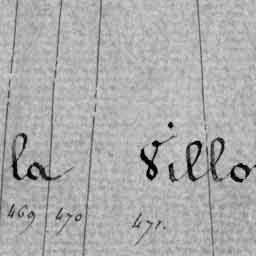 la Villo
469 470 471.